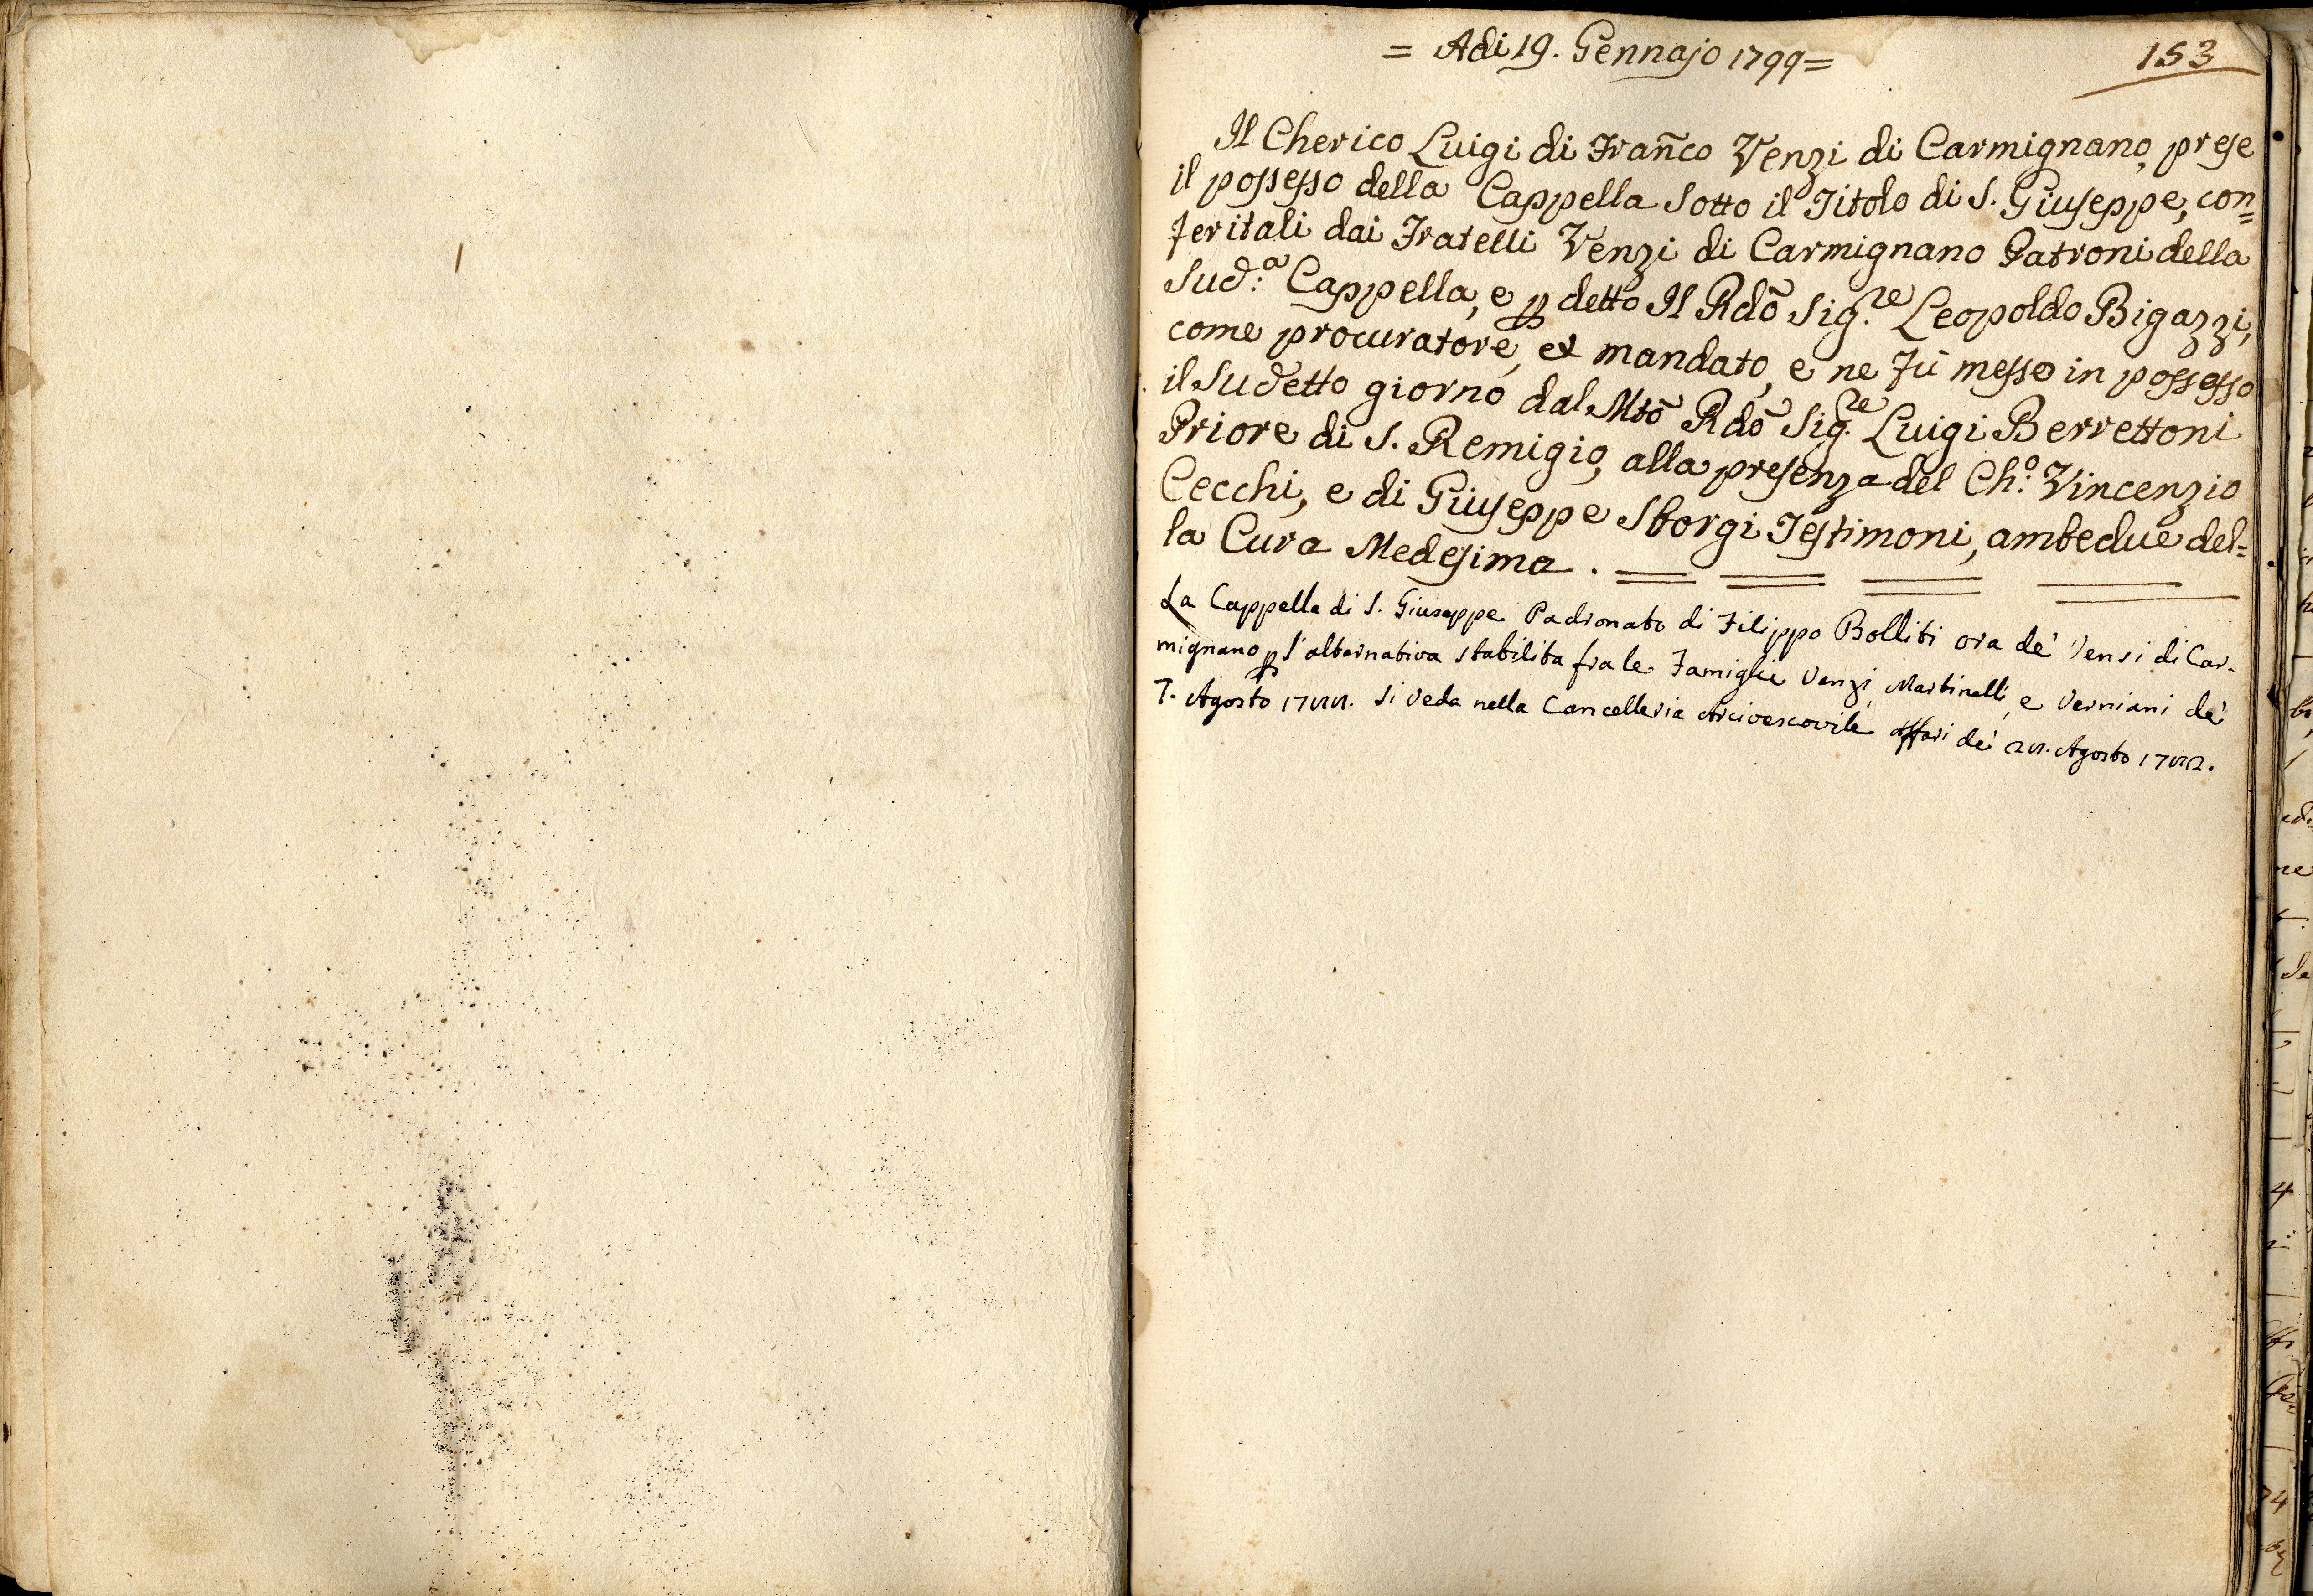 = Adi 19. Gennajo 1799 =
153
Il Cherico Luigi di Frañco Venzi di Carmignano, prese
il possesso della Cappella Sotto il Titolo di S. Giuseppe, con=
feritali dai Fratelli Venzi di Carmignano Patroni della
Sud:ª Cappella, e p detto Il Rdõ Sig.re Leopoldo Bigazzi,
come procuratore, et mandato, e ne fù messo in possesso
il Sudetto giorno dal Mtõ Rdõ Sig.re Luigi Berrettoni
Priore di S. Remigio, alla presenza del Ch:º Vincenzio
Cecchi, e di Giuseppe Sborgi Testimoni, ambedue del=
la Cura Medesima.
La Cappella di S. Giuseppe Padronato di Filippo Bolliti ora de' Vensi di Car-
mignano p l'alternativa stabilita fra le Famiglie Venzi, Martinelli, e Verniani de'
7. Agosto si veda nella Cancelleria Arcivescovile Affari de' Agosto